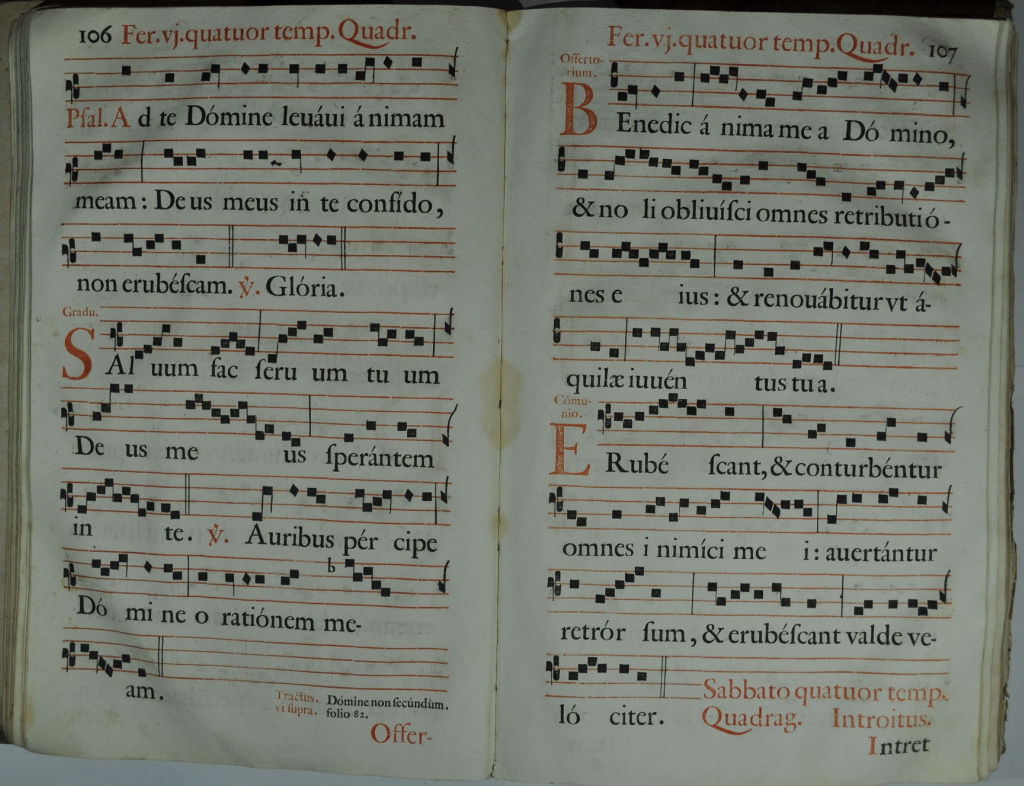 106 Fer.vj.quatuor temp.Quadr.
Psal. A d te Dómine leuáui ánimam
meam: Deus meus in te confído,
non erubéscam. ℣. Glória.
Gradu.
SAl uum fac seru um tu um
De us me us sperántem
in te. ℣. Auribus pér cipe
Dó mi ne o ratiónem me-
am.
Tractus. Dómine non secúndùm.
vt supra. folio 82.
Offer-
Fer.vj.quatuor temp.Quadr. 107
Offerto-
rium.
BEnedic á nima me a Dó mino,
& no li obliuísci omnes retributió-
nes e ius: & renouábitur vt á-
quilæ iuuén tus tu a.
Cõmu-
nio.
ERubé scant, & conturbéntur
omnes i nimíci me i: auertántur
retrór sum, & erubéscant valde ve-
ló citer.
Sabbato quatuor temp.
Quadrag. Introitus.
Intret